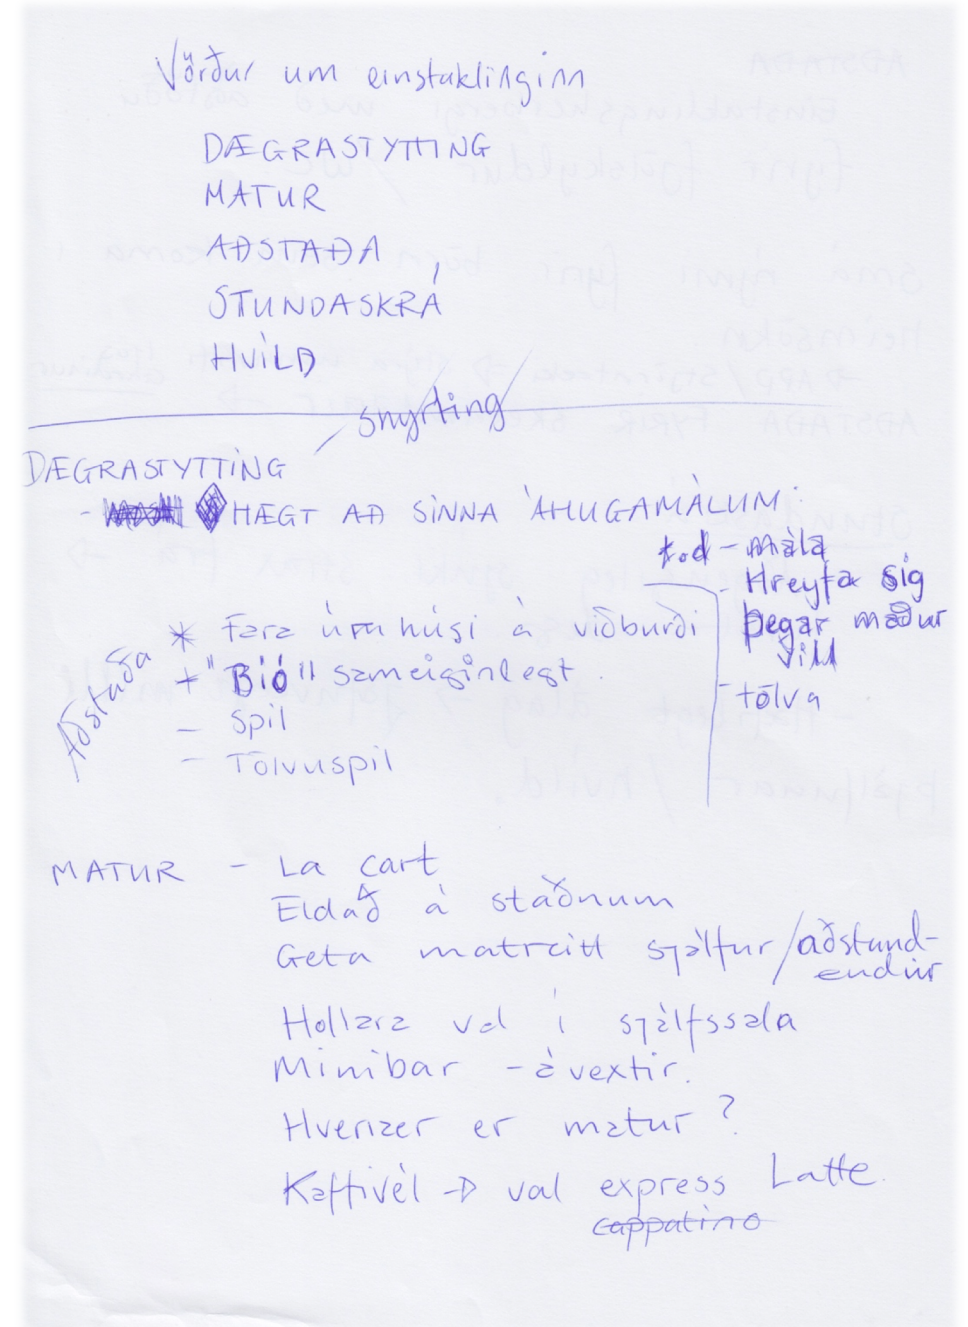 Vörður um einstaklinginn
DÆGRASTYTTING
MATUR
AÐSTAÐA
STUNDASKRÁ
HVÍLD
snyrting
DÆGRASTYTTING
HÆGT AÐ SINNA ÁHUGAMÁLUM:
t.d - mála
- Hreyfa sig
þegar maður
vill
- tölva
Aðstaða
* Fara úr húsi á viðburði
+ "Bíó" sameiginlegt
- Spil
- Tölvuspil
MATUR - La cart
Eldað á staðnum
Geta matreitt sjálfur/aðstand-
endur
Hollara val í sjálfssala
Minibar - ávextir.
Hvenær er matur?
Kaffivél → val express Latte
cappatino